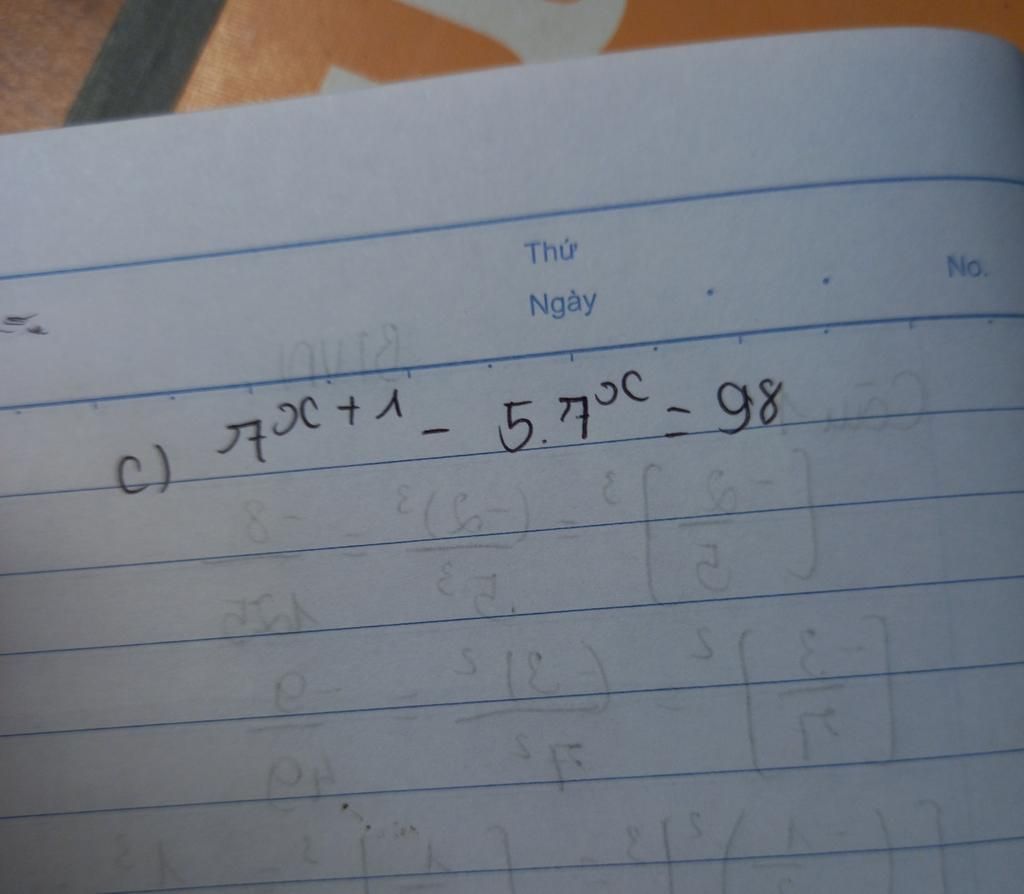 Thứ
Ngày
No.
c) 7^{x+1} - 5.7^x = 98